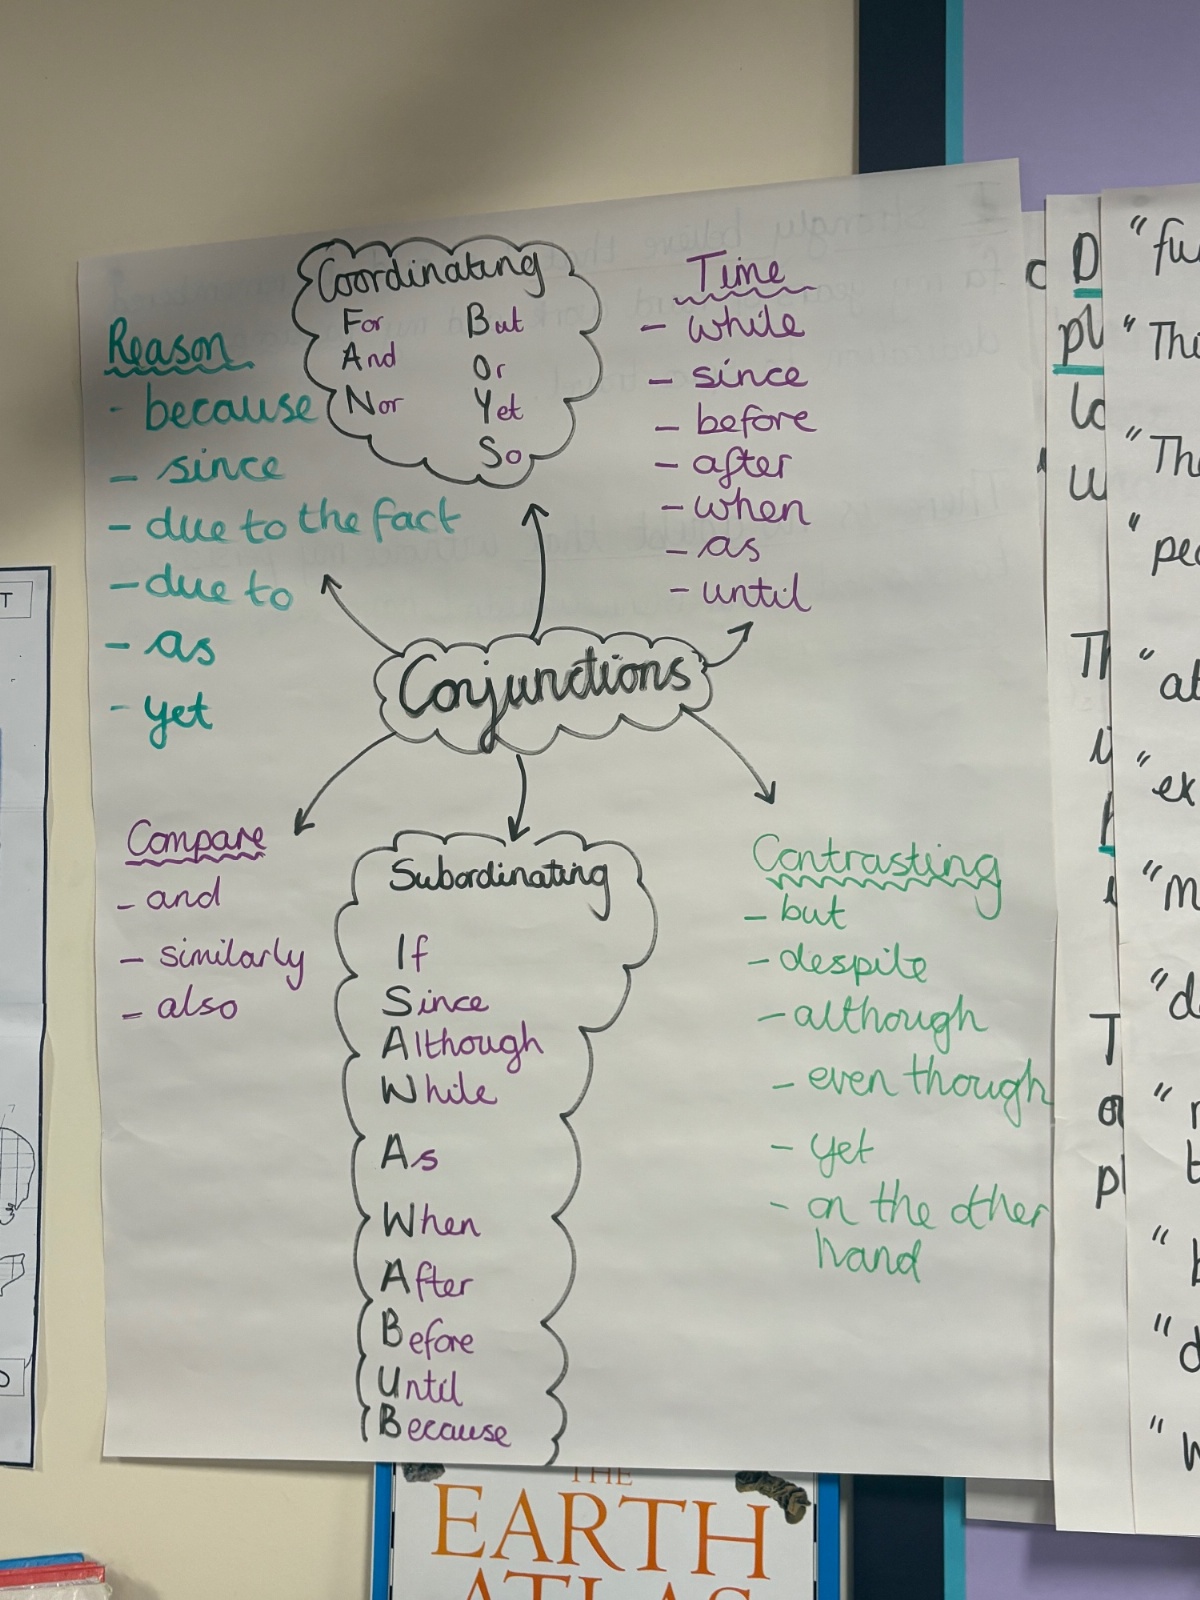 Coordinating
For
And
Nor
But
Or
Yet
So
Time
- while
- since
- before
- after
- when
- as
- until
Reason
- because
- since
- due to the fact
- due to
- as
- yet
Conjunctions
Compare
- and
- similarly
- also
Subordinating
If
Since
Although
While
As
When
After
Before
Until
Because
Contrasting
- but
- despite
- although
- even though
- yet
- on the other
hand
THE
EARTH
ATLAS